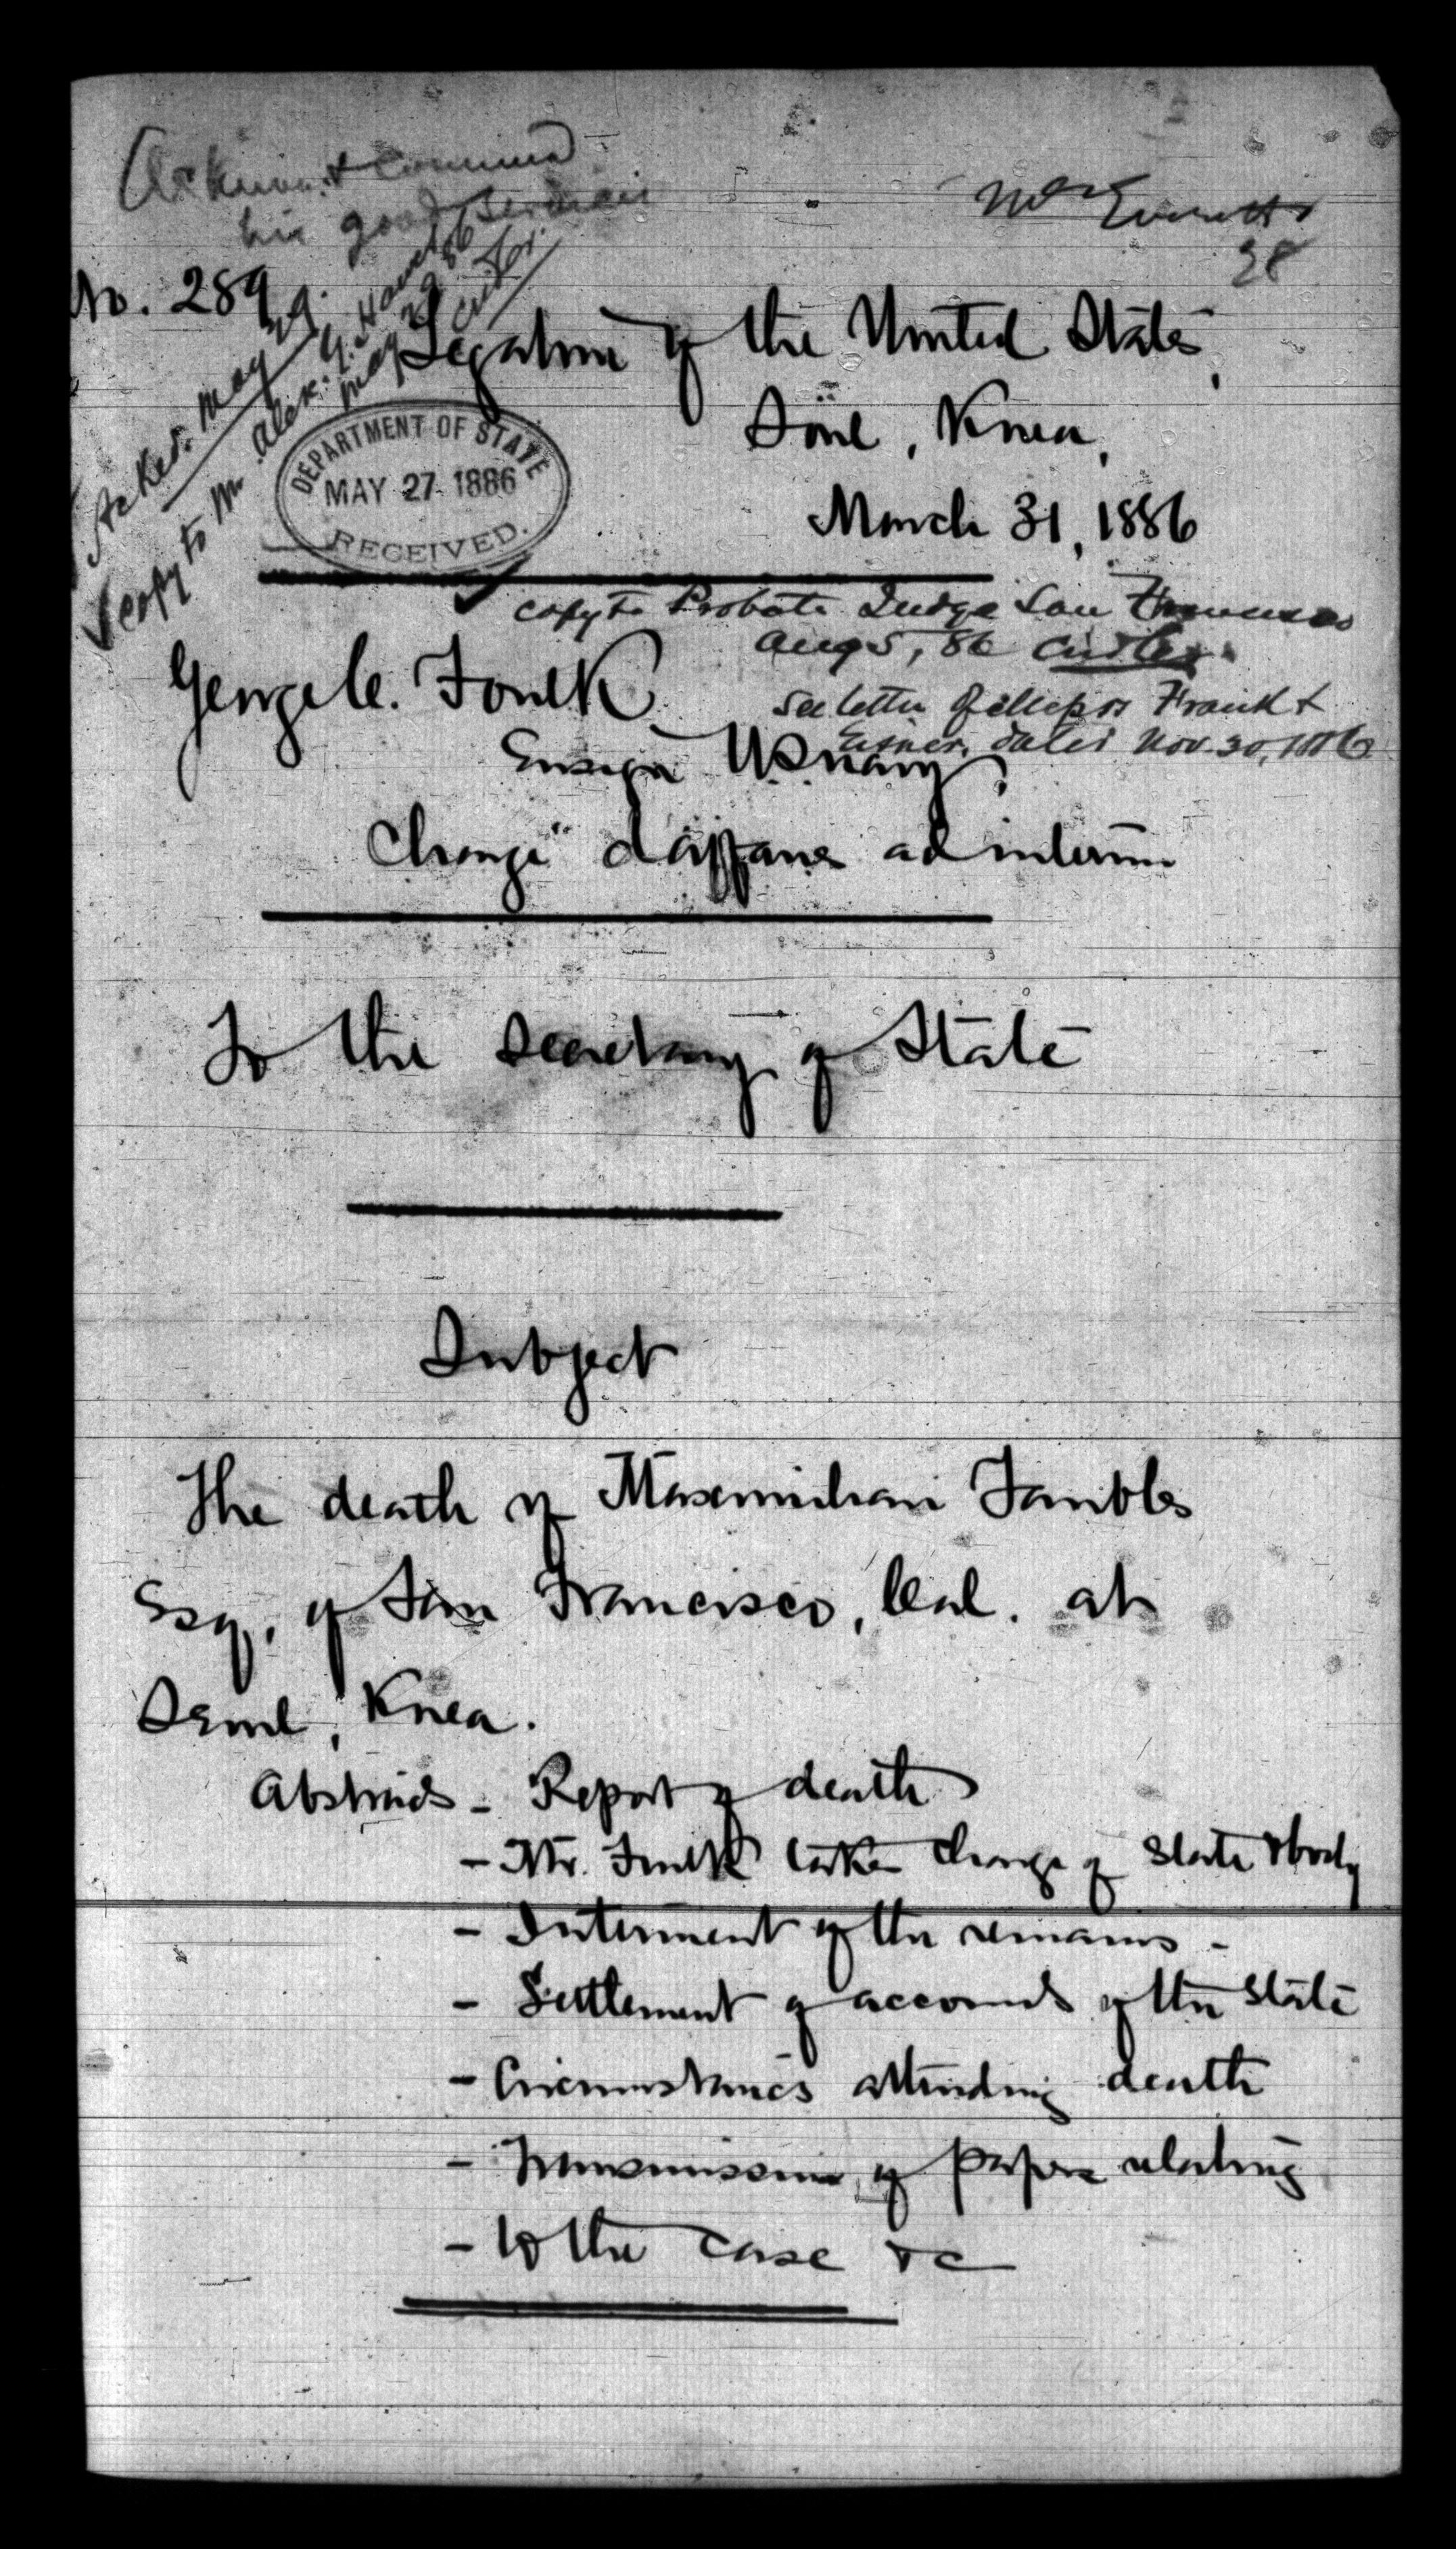 (Acknow. & commend
his good services
Mr Everett
28
No. 289.
Acked. May 29.
Copy to Mr. Alex. G. Hawes
May 29 86
Custer.
Legation of the United States,
Söul, Korea,
March 31, 1886
DEPARTMENT OF STATE
MAY 27 1886
RECEIVED.
copy to Probate Judge San Francisco
Aug 5, 86
See letter of Messrs Frank &
dated Nov. 30, 1886
George C. Foulk
Ensign U.S. Navy,
Chargé d'affaires ad interim
To the Secretary of State
Subject
The death of Maximilian Taubles
Esq., of San Francisco, Cal. at
Seoul, Korea.
Abstracts - Report of death
- Mr. Foulk takes charge of State & body
- Interment of the remains -
- Settlement of accounts of the State
- Circumstances attending death
- Transmission of papers relating
- to the case &c